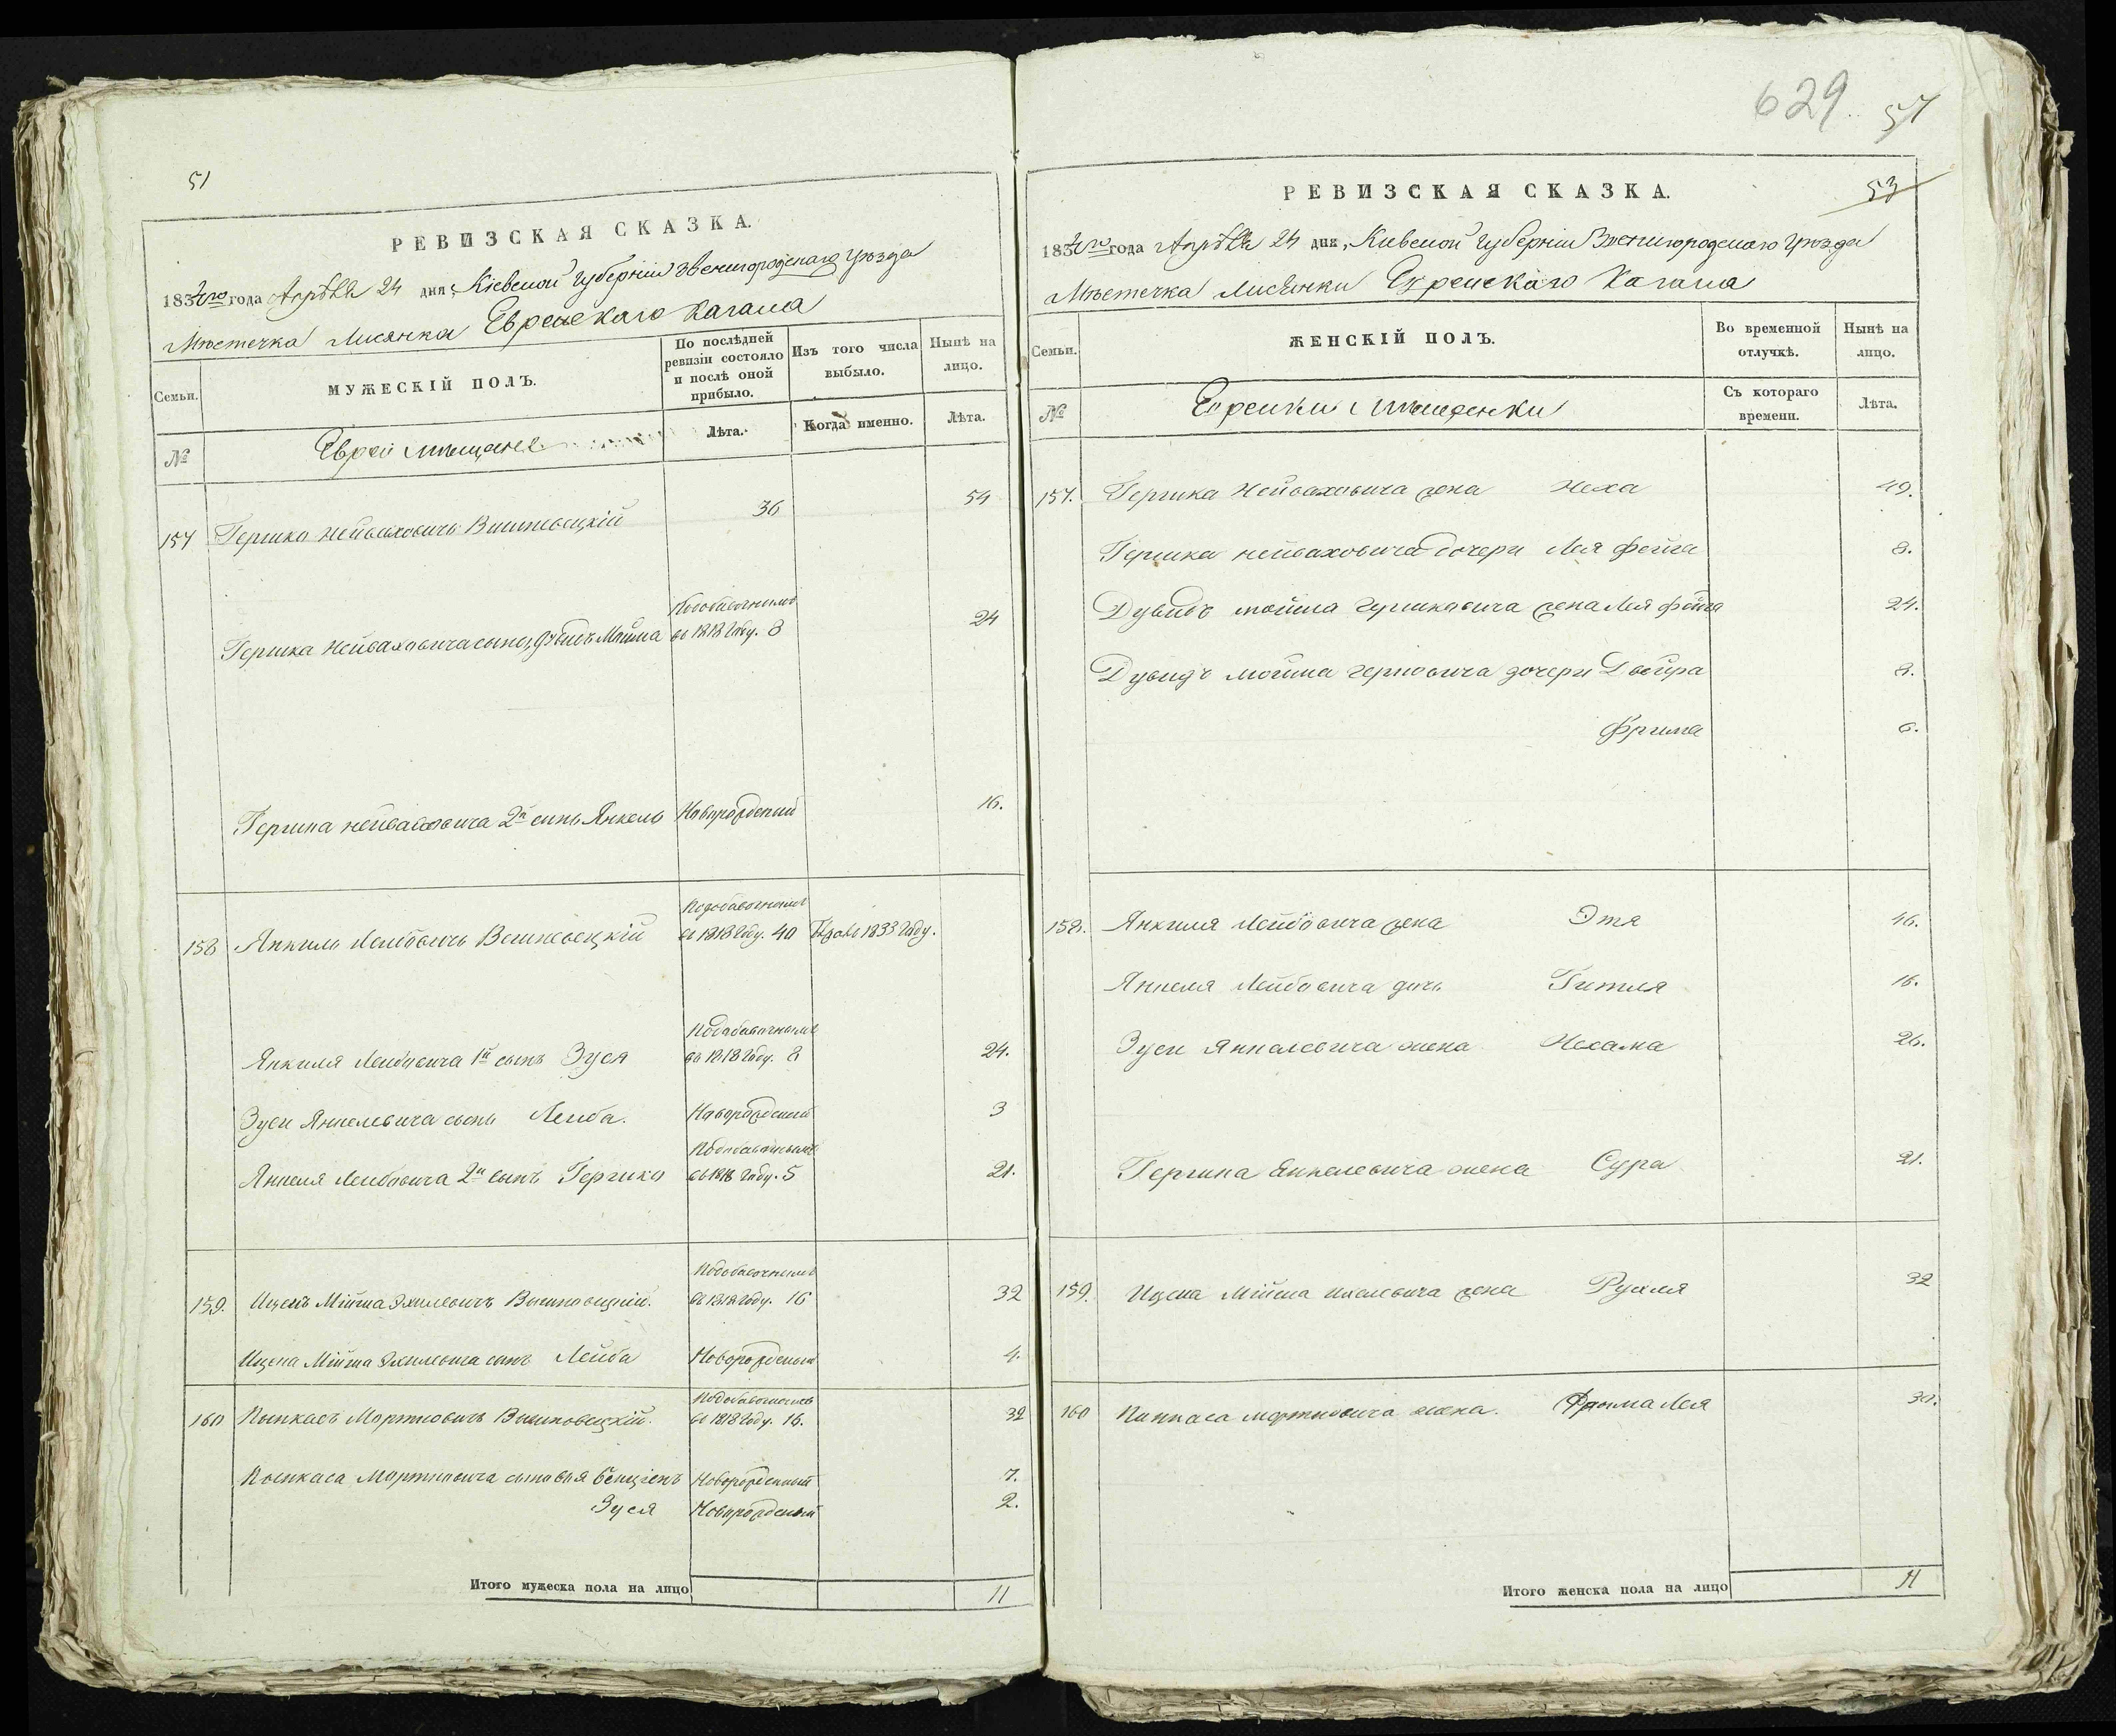 51
РЕВИЗСКАЯ СКАЗКА.
1834го года Апрѣля 24 дня, Кіевской Губерніи Звенигородскаго Уѣзда
Мѣстечка Лисянка Еврейскаго Кагала
Семьи.
МУЖЕСКІЙ ПОЛЪ.
По послѣдней ревизіи состояло и послѣ оной прибыло.
Изъ того числа выбыло.
Нынѣ на лицо.
№
Евреи мѣщане
Лѣта.
Когда именно.
Лѣта.
157 Гершко Нейваховичъ Вишневецкій 36 54
Подобавочнымъ
Гершка Нейваховича сынъ, Дувидъ Мойша въ 1818 Году. 8 24
Гершка Нейваховича 2й сынъ Янкель Новорожденный 16.
Подобавочнымъ
158 Янкиль Лейбовичъ Вишневецкій въ 1818 Году. 40 въ 1833 Году.
Подобавочнымъ
Янкиля Лейбовича 1й сынъ Зуся въ 1818 Году. 8 24.
Зуси Янкелевича сынъ Лейба. Новорожденный 3
Подобавочнымъ
Янкеля Лейбовича 2й сынъ Гершко въ 1818 Году. 5 21.
Подобавочнымъ
159. Ицекъ Мойша Эхилевичъ Вишновецкій. въ 1818 Году. 16 32
Ицека Мойша Эхилевича сынъ Лейба Новорожденный 4.
Подобавочнымъ
160 Пинкасъ Мортковичъ Вишновецкій. въ 1818 Году. 16. 32
Пинкаса Мортковича сыновья Бенціенъ Новорожденный 7.
Зуся Новорожденный 2.
Итого мужеска пола на лицо 11
629. 57
53
РЕВИЗСКАЯ СКАЗКА.
1834го года Апрѣля 24 дня, Кіевской Губерніи Звенигородскаго Уѣзда
Мѣстечка Лисянки Еврейскаго Кагала
Семьи.
ЖЕНСКІЙ ПОЛЪ.
Во временной отлучкѣ.
Нынѣ на лицо.
№
Еврейки Мѣщанки
Съ котораго времени.
Лѣта.
157. Гершка Нейваховича жена Неха 49.
Гершка Нейваховича дочери Лея Фейга 8.
Дувидъ Мойша Гершковича жена Лея Фейга 24.
Дувидъ Мойша Герковича дочери Двойра 8.
Фрима 6.
158. Янкиля Лейбовича жена Этя 46.
Янкеля Лейбовича дочь Гитля 16.
Зуси Янкелевича жена Нехама 26.
Гершка Янкелевича жена Сура 21.
159. Ицека Мойша Ихелевича жена Рухля 32
160 Пинкаса Мортковича жена. Фрима Лея 30.
Итого женска пола на лицо 11